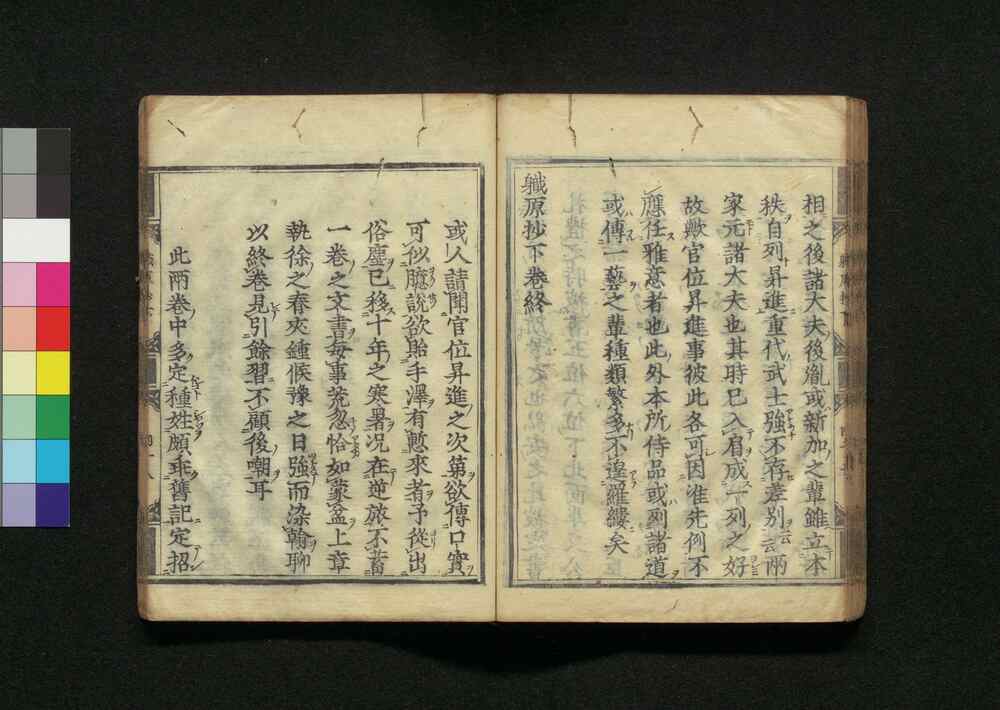 相之後諸大夫後胤或新加之輩雖立本
秩自列昇進重代武士強不存差別云兩
家元諸大夫也其時已入眉成一列之好
故歟官位昇進事彼此各可因准先例不
應任雅意者也此外本所侍品或列諸道
或傳一藝之輩種類繁多不遑羅縷矣
職原抄下卷終
或人請聞官位昇進之次第欲傳口實
可似臆說欲貽手澤有慙來者予從出
俗塵已移十年之寒暑况在逆旅不蓄
一卷之文書每事荒忽恰如蒙盆上章
執徐之春夾鍾候豫之日強而染翰聊
以終卷見引餘習不顧後嘲耳
此兩卷中多定種姓頗乖舊記定招